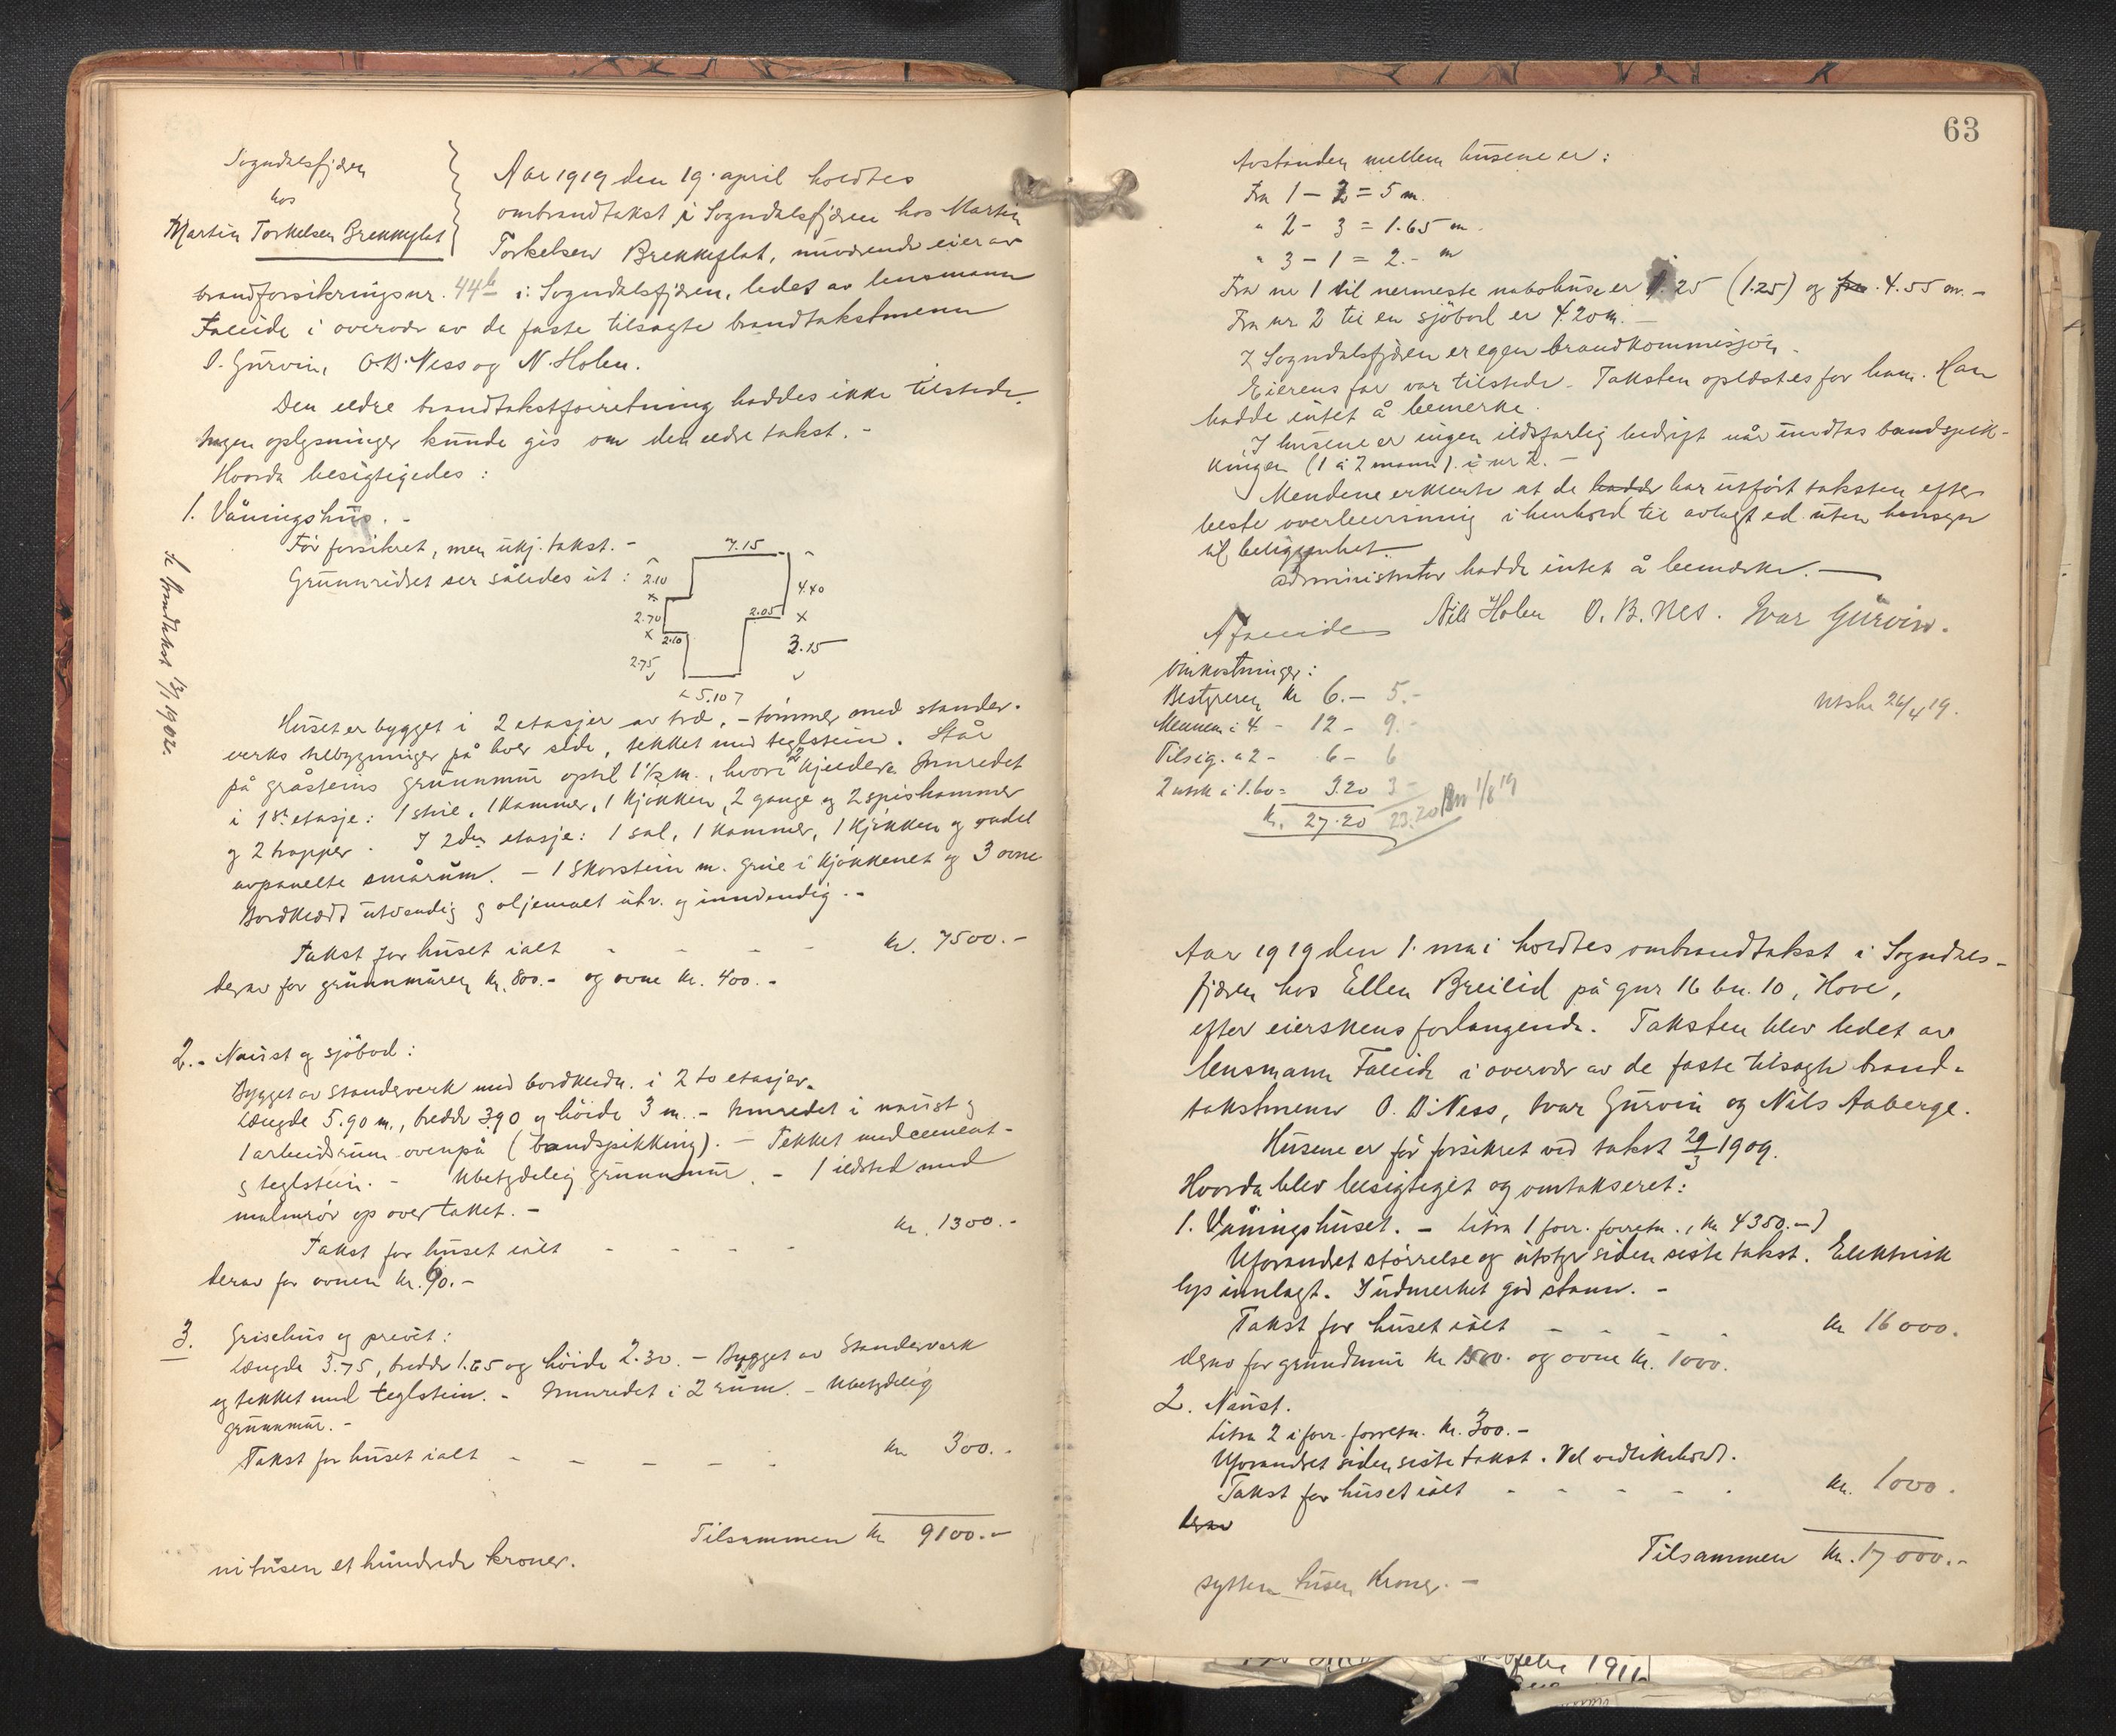 Sogndalsfjøren
hos
Martin Torkelsen Brekkeflat
Aar 1919 den 19. april holdtes
ombrandtakst i Sogndalsfjøren hos Martin
Torkelsen Brekkeflat, nuværende eier av
brandforsikringsnr. 44b i Sogndalsfjøren, ledet av lensmann
Faleide i overvær av de faste tilsagte brandtakstmenn
I. Gurvin, O.B. Ness og N. Holen.
Den eldre brandtakstforretning haddes ikke tilstede.
Ingen oplysninger kunde gis om den eldre takst. -
Hvorda besigtigedes:
1. Våningshus. -
Før forsikret, men ukj. takst. -
Grunnridset ser således ut:
7.15
2.10
4.40
2.70
2.05
2.10
3.15
2.75
5.10
Se brandtakst 13/1 1902.
Huset er bygget i 2 etasjer av træ, - tømmer med stander-
verks tilbygninger på hver side, tekket med teglstein. Står
på gråsteins grunnmur optil 1½ m., hvori 2 kjeldere. Innredet
i 1ste etasje: 1 stue, 1 kammer, 1 kjøkken, 2 gange og 2 spiskammer
og 2 trapper. I 2den etasje: 1 sal, 1 kammer, 1 kjøkken og endel
avpanelte smårum. - 1 skorstein m. grue i kjøkkenet og 3 ovne
Bordklædd utvendig og oljemalt utv. og innvendig. -
Takst for huset ialt - - - - kr. 7500.-
derav for grunnmuren kr. 800.- og ovne kr. 400.-
2. - Naust og sjøbod:
Bygget av standerverk med bordklædn. i 2 to etasjer.
Længde 5.90 m., bredde 3.90 og høide 3 m. - Innredet i naust og
1 arbeidsrum ovenpå (bandspikking). - Tekket med cement-
og teglstein. - Ubetydelig grunnmur. - 1 ildsted med
malmrør op over taket. -
Takst for huset ialt - - - - kr. 1300.-
derav for ovnen kr. 60.-
3. Grisehus og privet:
Længde 3.75, bredde 1.65 og høide 2.30. - Bygget av standerverk
og tekket med teglstein. - Innredet i 2 rum. - Ubetydelig
grunnmur. -
Takst for huset ialt - - - - - kr. 300.-
Tilsammen kr. 9100.-
ni tusen et hundrede kroner.
63
Avstanden mellem husene er:
Fra 1 - 2 = 5 m.
" 2 - 3 = 1.65 m.
" 3 - 1 = 2.- m
Fra nr 1 til nermeste nabohuse er 1.25 (1.25) og fra 4.55 m. -
Fra nr. 2 til en sjøbod er 4.20 m. -
I Sogndalsfjøren er egen brandkommisjon. -
Eierens far var tilstede. - Taksten oplæstes for ham. Han
hadde intet å bemerke.
I husene er ingen ildsfarlig bedrift når undtas bandspik-
kingen (1 à 2 mann) i nr 2. -
Mendene erklærte at de hadde har utført taksten efter
beste overbevisning i henhold til avlagt ed uten hensyn
til beliggenhet.
Administrator hadde intet å bemerke. -
A Faleide Nils Holen O. B. Nes. Ivar Gurvin.
Omkostninger:
Bestyreren kr 6.- 5.-
Mennene à 4 - 12 - 9.-
Tilsig. à 2 - 6 - 6
2 utsk à 1.60 = 3.20 3 -
Kr. 27.20 23.20 1/8 19
Utskr 26/4 19.
Aar 1919 den 1. mai holdtes ombrandtakst i Sogndals-
fjøren hos Ellen Breilid på gnr 16 bn. 10, Hove,
efter eierskens forlangende. Taksten blev ledet av
lensmann Faleide i overvær av de faste tilsagte brand-
takstmenn O. B. Ness, Ivar Gurvin og Nils Aaberge.
Husene er før forsikret ved takst 29/3 1909.
Hvorda blev besigtiget og omtakseret:
1. Våningshuset. - Litra 1 forr. forretn., (kr. 4350.-)
Uforandret størrelse og utstyr siden siste takst. Elektrisk
lys innlagt. I udmerket god stann. -
Takst for huset ialt - - - - kr 16000.
derav for grundmur kr 1500. og ovne kr. 1000.
2. Naust.
Litra 2 i forr. forretn. kr. 300.-
Uforandret siden siste takst. Vel vedlikeholdt.
Takst for huset ialt - - - - - kr. 1000.
derav
Tilsammen kr. 17000.-
sytten tusen kroner. -
1911